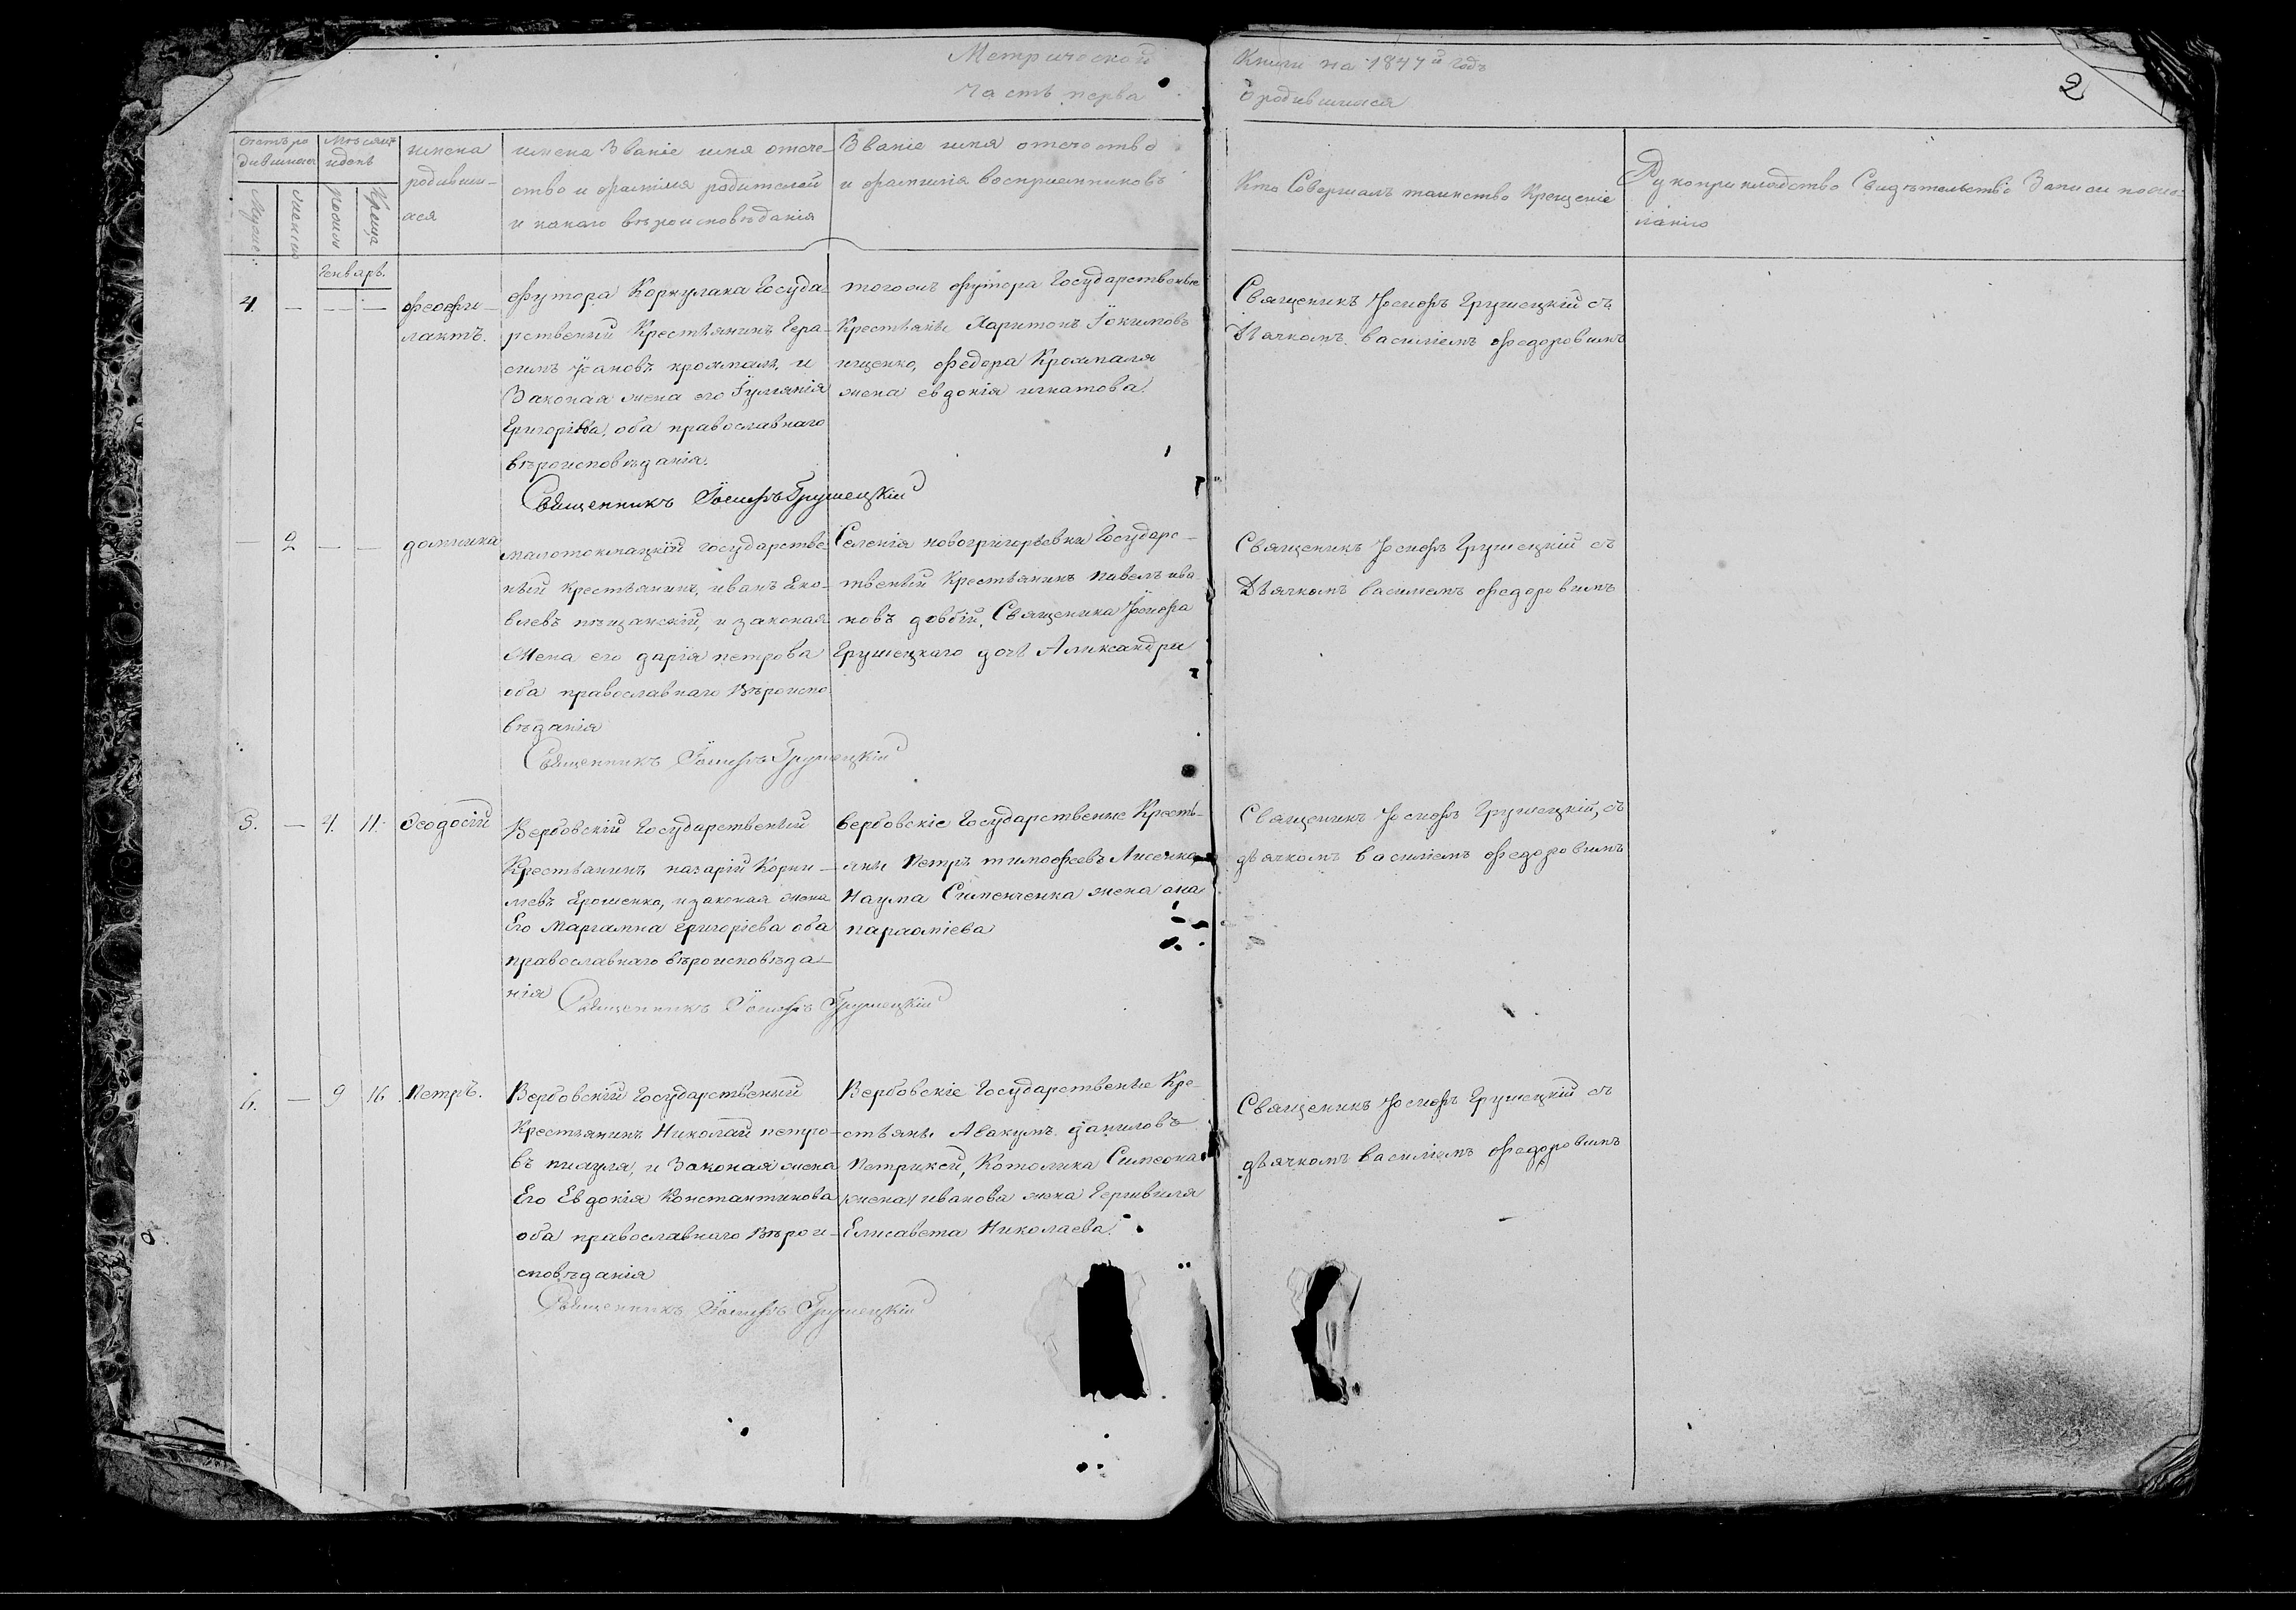 Метрической
Часть перва
Книги на 1847й годъ
О родившихся
2
Счетъ ро
дившихся
Мѣсяцъ
и день
имена
родивши-
хся
имена Званіе имя отече-
ство и фамилія родителей
и какаго вѣроисповѣданія
Званіе имя отечество
и фамилія воспріемниковъ
Кто Совершалъ таинство Крещеніе
Рукоприкладство Свидѣтельство Записи по
ланію
Генварь.
4. — — —
Феофи-
лактъ.
футора Коркулака Госуда-
рственый Крестьянинъ Гера-
симъ и
Законая жена его
Григоріева, оба православнаго
вѣроисповѣданія.
Священникъ Іосифъ Грушецкій
тогожъ футора Государственые
Крестьяне Харитонъ Іокимовъ
ищенко, федора
жена евдокія игнатова.
Священикъ Іосифъ Грушецкій съ
Дьячкомъ василіемъ федоровимъ
— 2 — —
домника
малотокмацкій государстве-
ный крестьянинъ, иванъ Яко-
влевъ пѣщанскій, и законая
Жена его дарія петрова
оба православнаго Вѣроиспо-
вѣданія
Священникъ Іосифъ Грушецкій
Селенія новогригорьевки Государс-
твеный Крестьянинъ павелъ ива-
новъ довбій, Священика Іосифа
Грушецкаго дочь Александра
Священикъ Іосифъ Грушецкій съ
Дьячкомъ василіемъ федоровимъ
5. — 4. 11.
Феодосій
Вербовскій Государственый
Крестьанинъ назарій Корни-
ліевъ Ярошенко, и законая жена
Его Маріамна григоріева оба
православнаго вѣроисповѣда-
нія
Священникъ Іосифъ Грушецкій
вербовскіе Государственые Кресть-
яне Петръ тимофеевъ Лисенко,
Наума Сименченка жена ана
Священикъ Іосифъ Грушецкій, съ
дьячкомъ василіемъ федоровимъ
6. — 9 16
Петръ.
Вербовскій Государственый
Крестьянинъ Николай петро-
въ и Законая жена
Его Евдокія Константинова
оба православнаго Вѣрои-
сповѣданія
Священникъ Іосифъ Грушецкій
Вербовскіе Государственые Кре-
стьяне Авакумъ даниловъ
Петриксй, Котолика Симеона
иванова жена
Елисавета Николаева.
Священикъ Іосифъ Грушецкій съ
дьячкомъ василіемъ федоровимъ